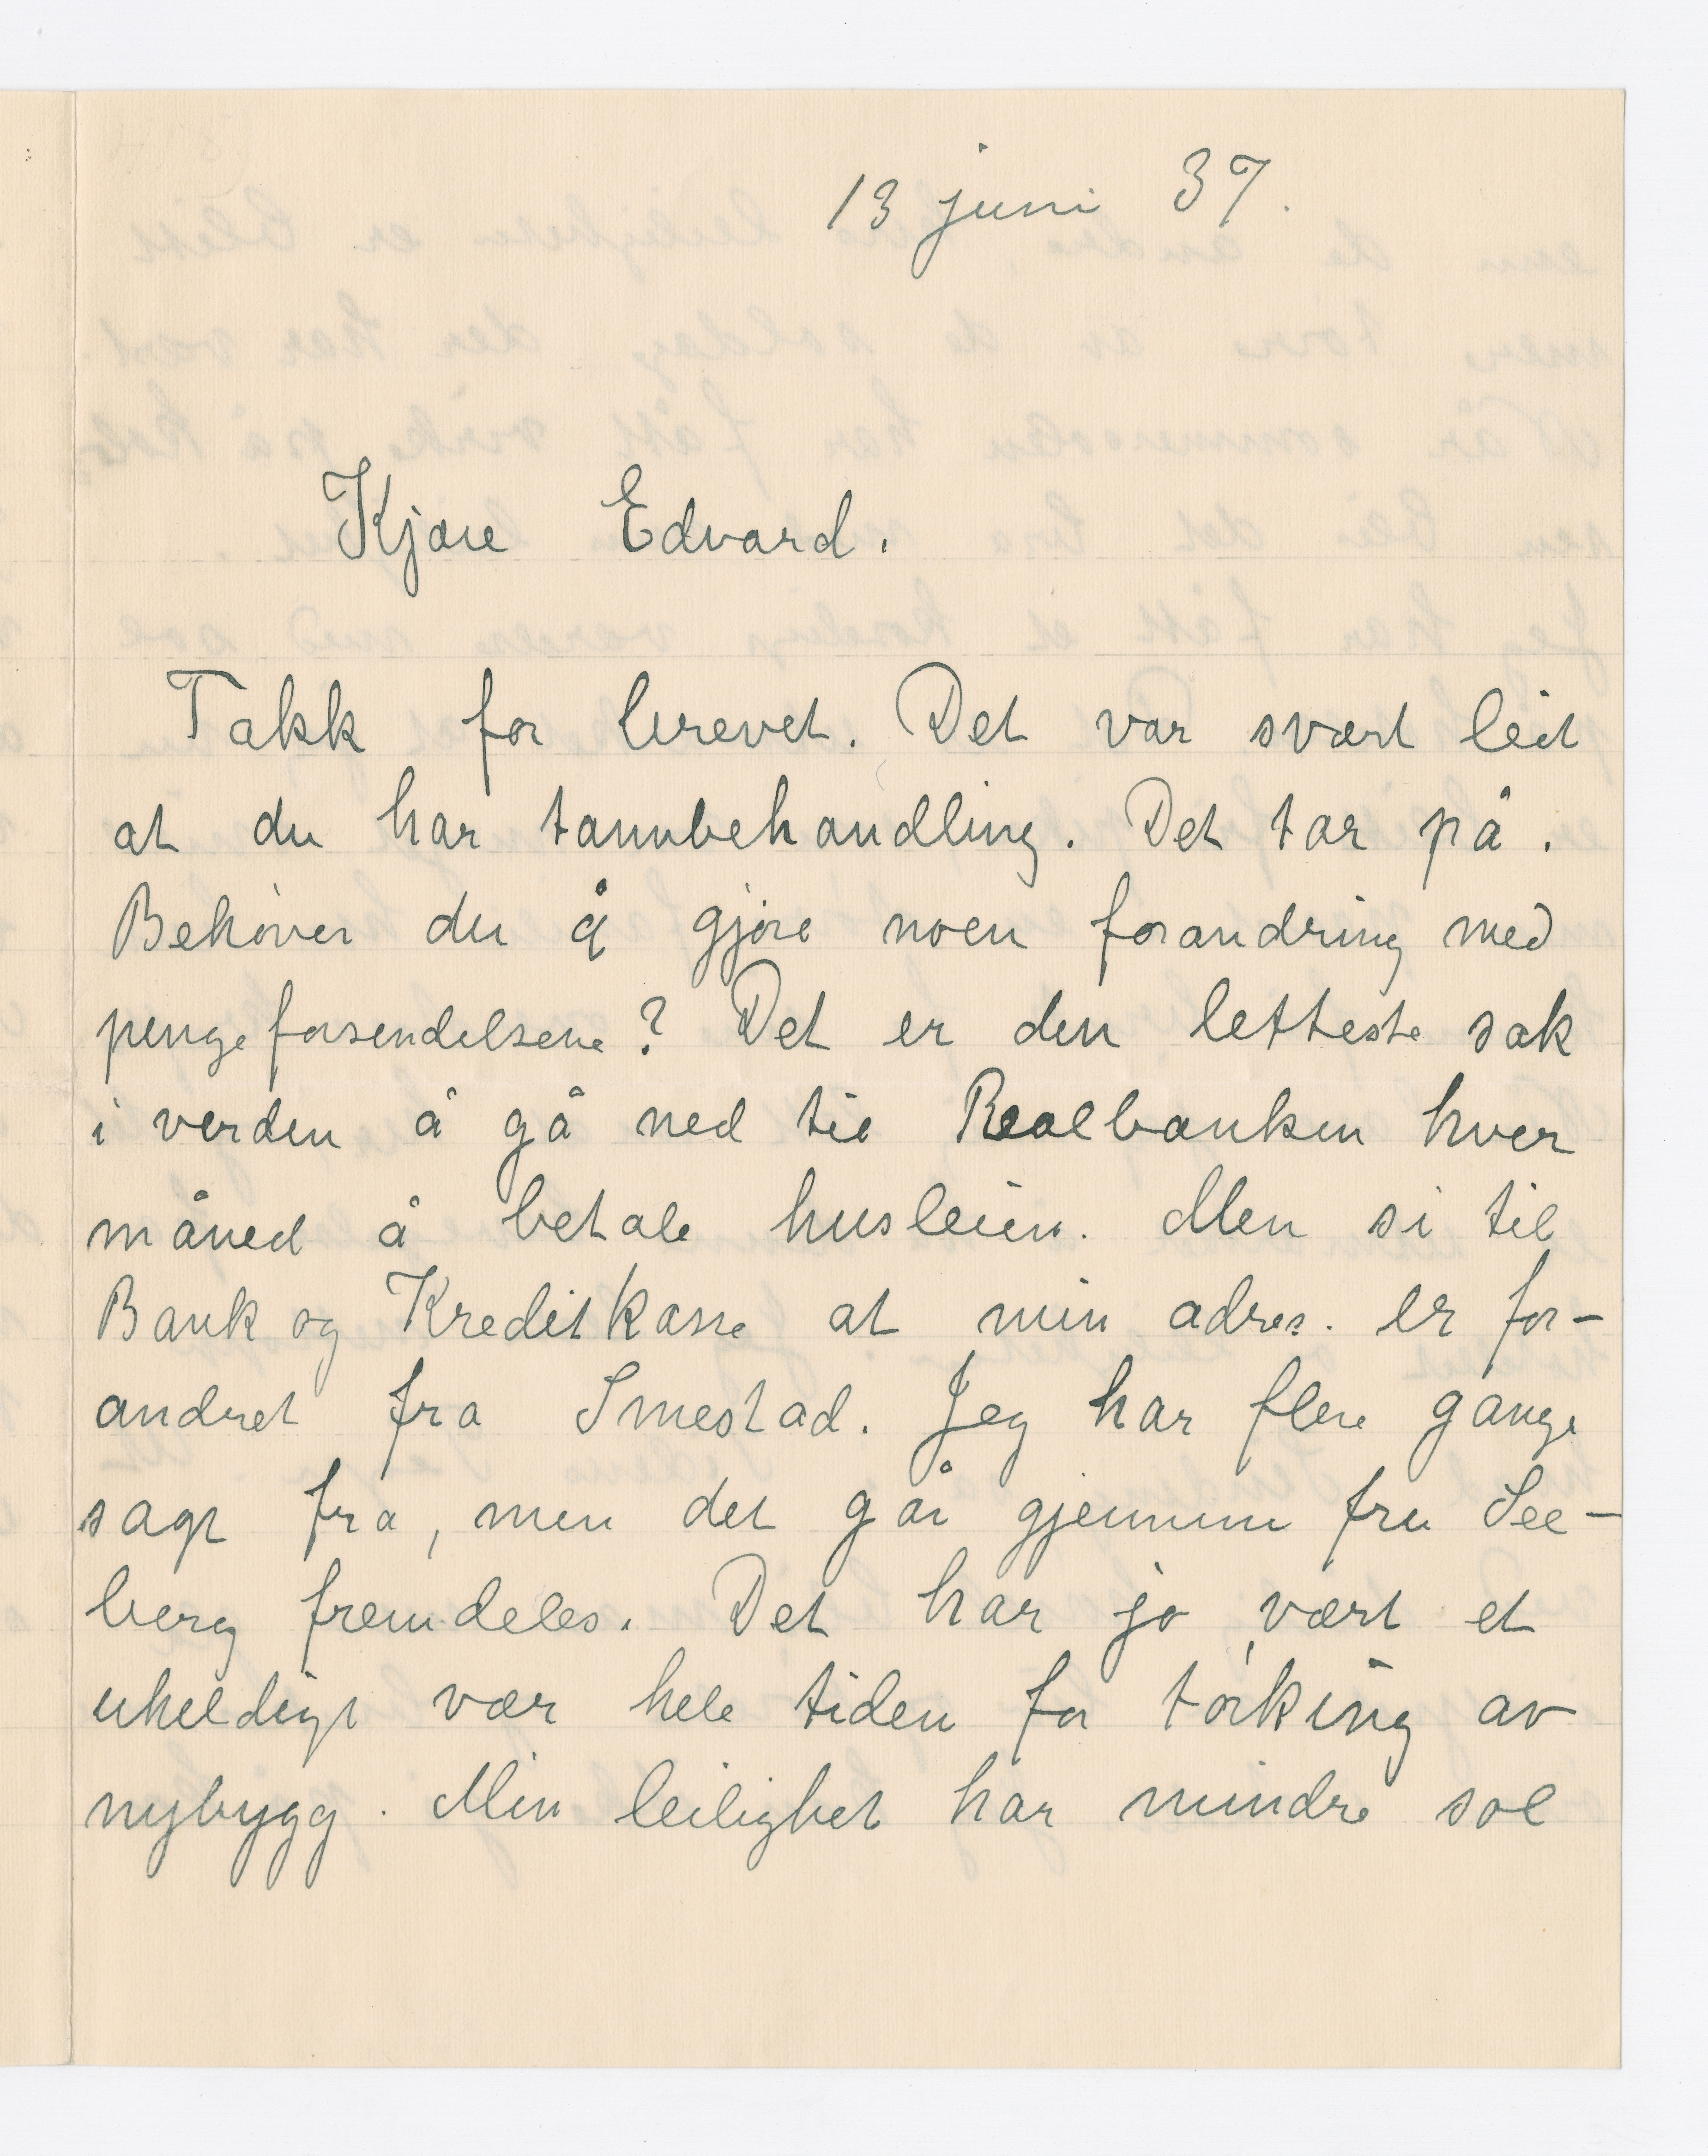 13 juni 37.
Kjære Edvard.
Takk for brevet. Det var svært leit
at du har tannbehandling. Det tar på.
Behøver du å gjøre noen forandring med
pengeforsendelsene? Det er den letteste sak
i verden å gå ned til Realbanken hver
måned å betale husleien. Men si til
Bank og Kreditkasse at min adres. er for-
andret fra Smestad. Jeg har flere gange
sagt fra, men det går gjennem fru See-
berg fremdeles. Det har jo vært et
uheldigt vær hele tiden for tørking av
nybygg. Min leilighet har mindre sol